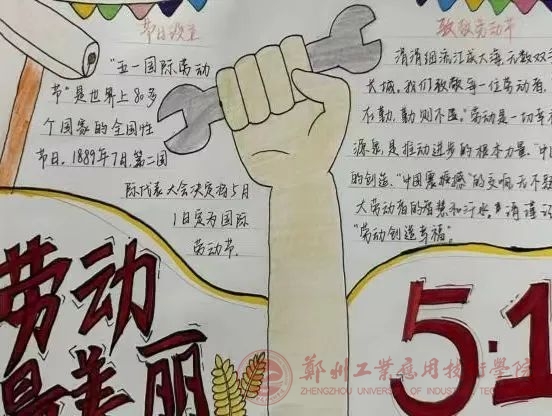 节日设立
"五一国际劳动
节"是世界上80多
个国家的全国性
节日。1889年7月,第二国
际代表大会决定将5月
1日定为国际
劳动节。
致敬劳动节
涓涓细流汇成大海,无数双手
长城。我们致敬每一位劳动者,
在勤,勤则不匮。"劳动是一切幸
源泉,是推动进步的根本力量,"中国
的创造、"中国震撼"的交响,无不
大劳动者的智慧和汗水。请谨记
"劳动创造幸福"。
劳动
最美丽
5·1
郑州工业应用技术学院
ZHENGZHOU UNIVERSITY OF INDUSTRIAL TE